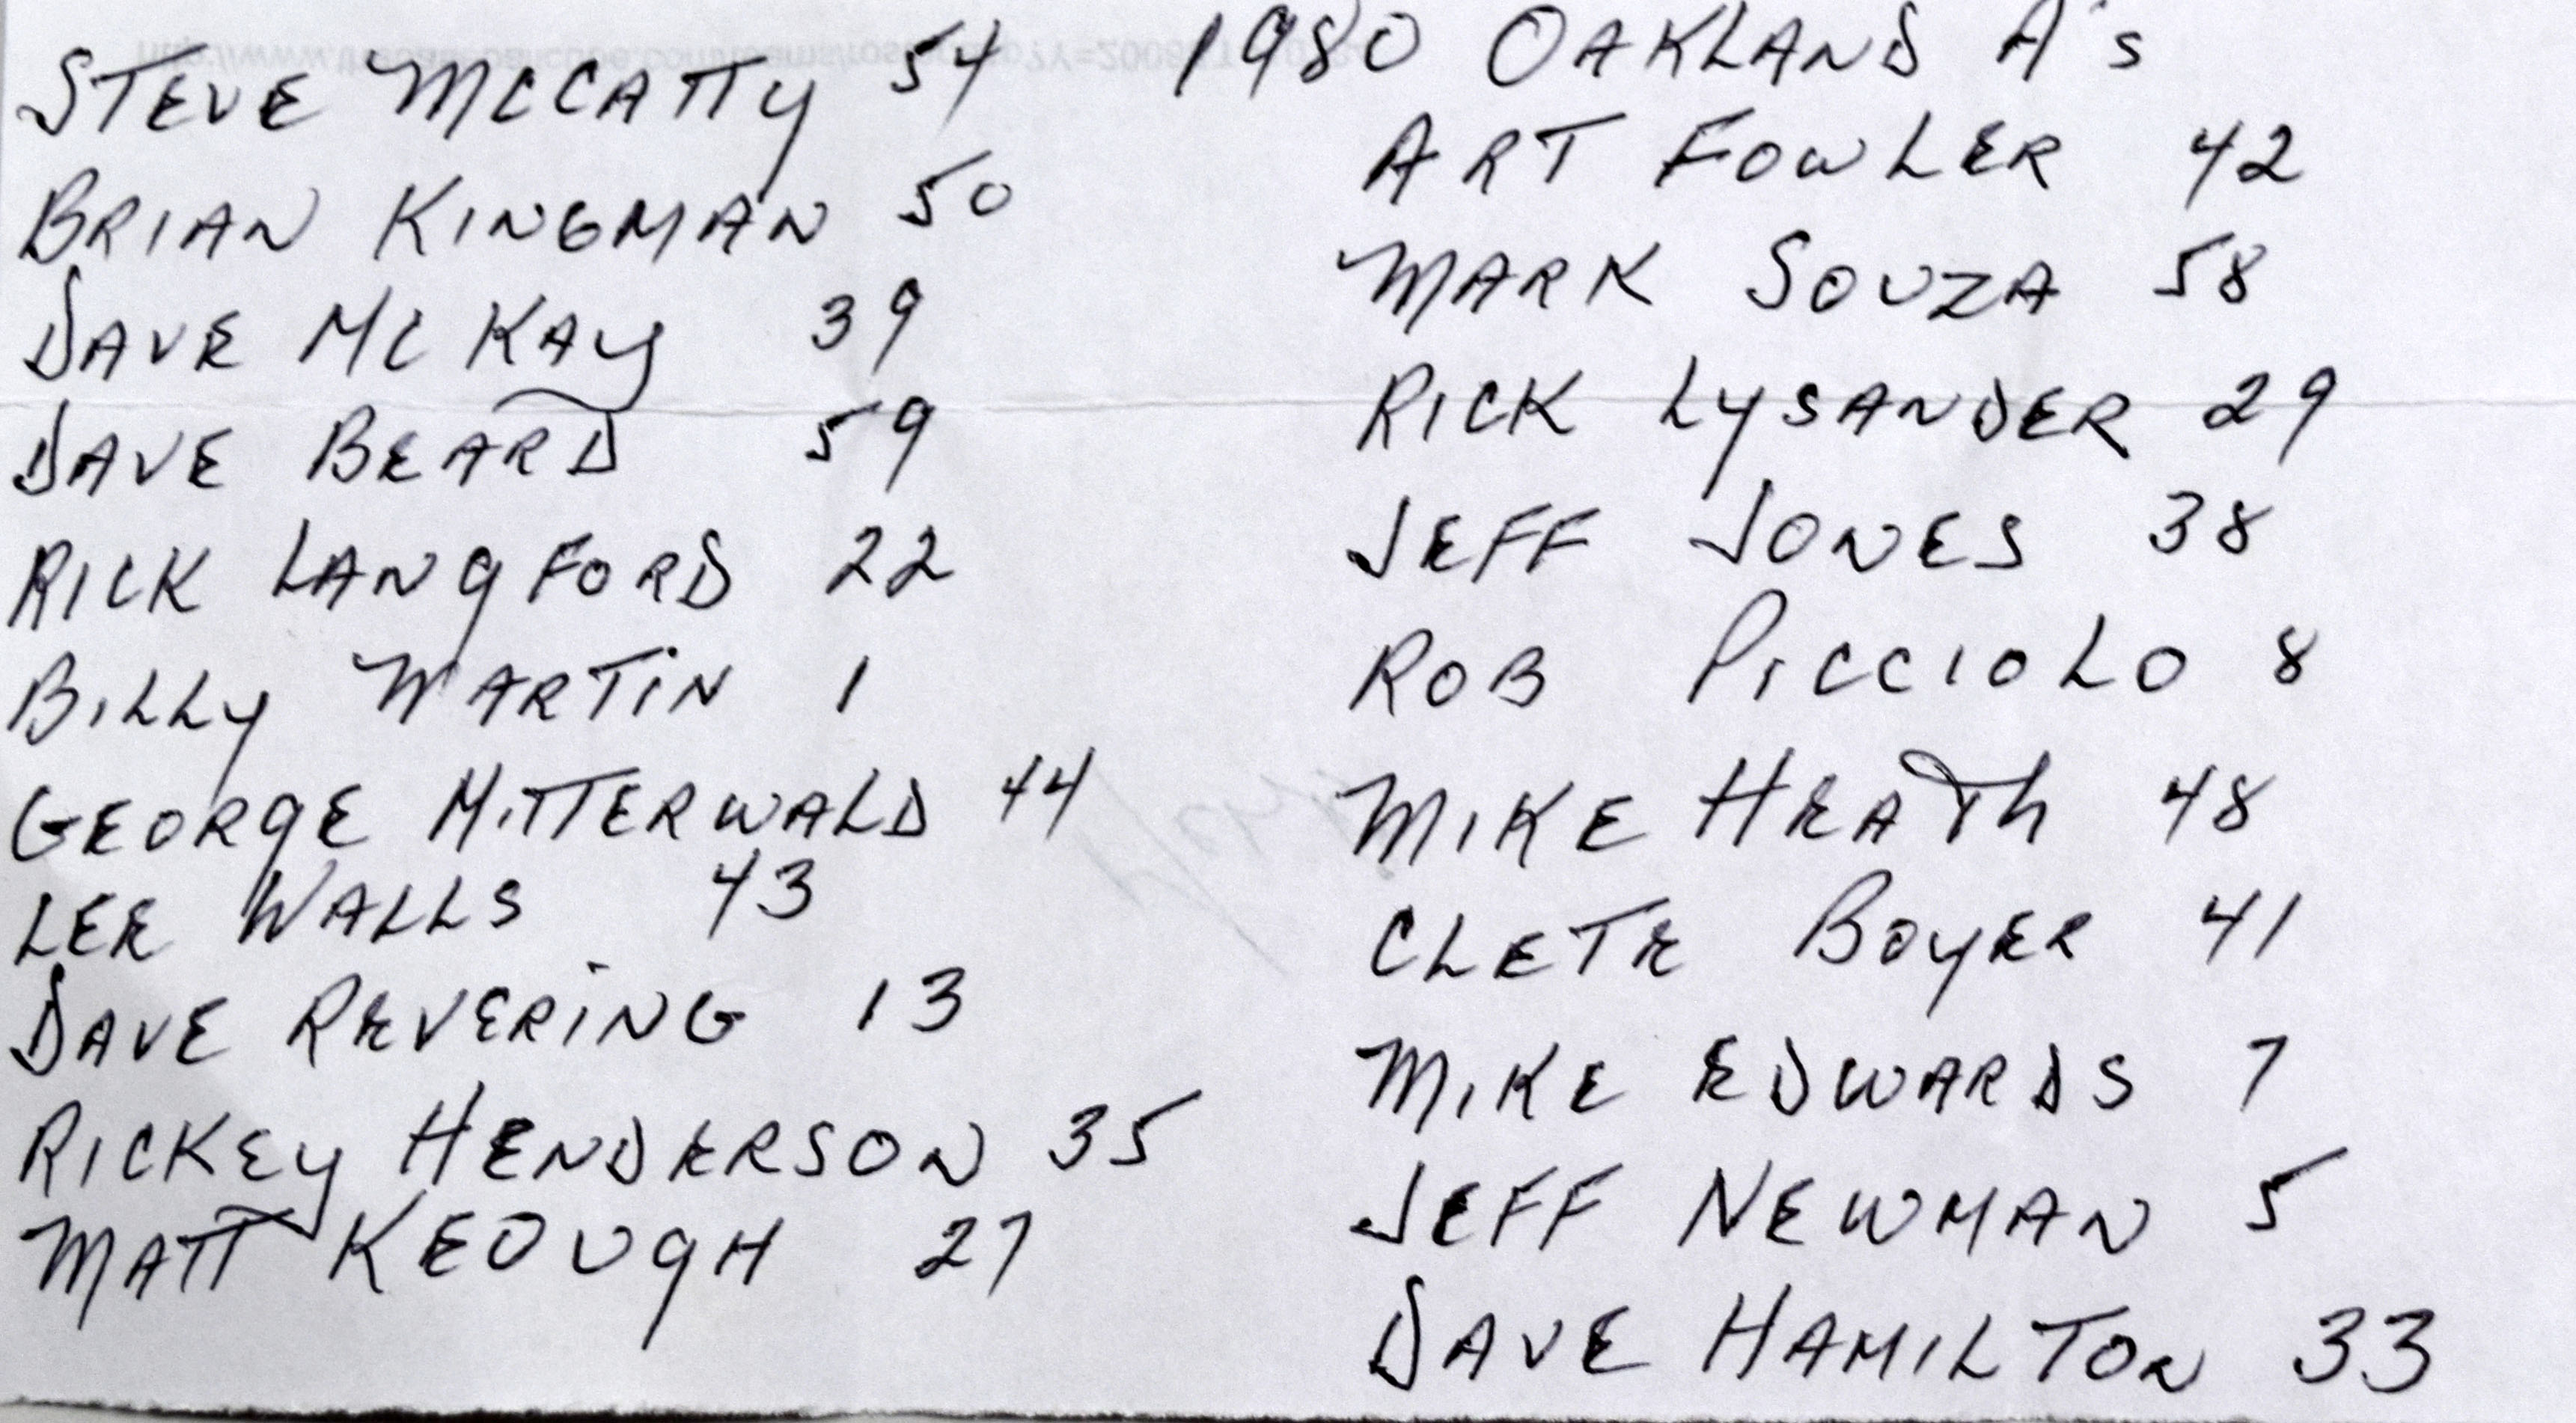 1980 OAKLAND A's
STEVE McCATTY 54
BRIAN KINGMAN 50
DAVE McKAY 39
DAVE BEARD 59
RICK LANGFORD 22
BILLY MARTIN 1
GEORGE MITTERWALD 44
LEE WALLS 43
DAVE REVERING 13
RICKEY HENDERSON 35
MATT KEOUGH 27
ART FOWLER 42
MARK SOUZA 58
RICK LYSANDER 29
JEFF JONES 38
ROB PICCIOLO 8
MIKE HEATH 48
CLETE BOYER 41
MIKE EDWARDS 7
JEFF NEWMAN 5
DAVE HAMILTON 33